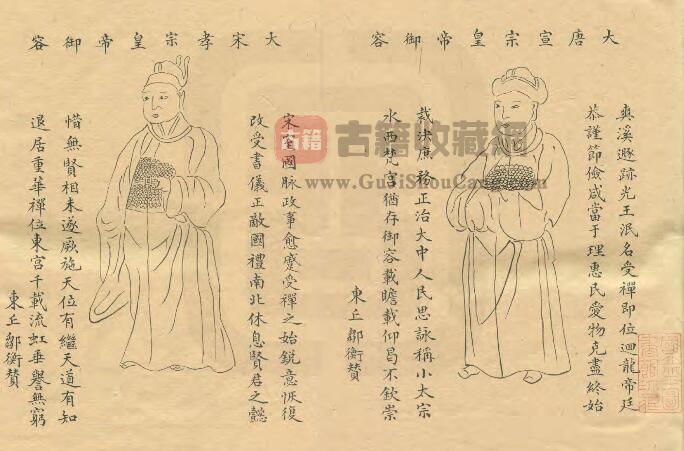 大唐宣宗皇帝御容
爽溪遯跡光王泯名受禪即位迴龍帝廷
恭謹節儉咸當于理惠民愛物克盡終始
裁決庶務正治大中人民思詠稱小太宗
水西梵宮猶存御容載瞻載仰曷不欽崇
東丘鄒衡贊
大宋孝宗皇帝御容
宋室國脉政事愈蹙受禪之始銳意恢復
改受書儀正敵國禮南北休息賢君之懿
惜無賢相未遂厥施天位有繼天道有知
退居重華禪位東宮千載流虹垂譽無窮
東丘鄒衡贊
古籍
古籍收藏網
www.GuJiShouCang.com